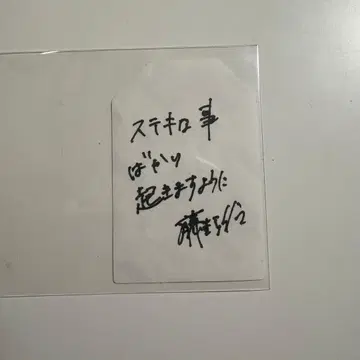 ステキな事
ばかり
起きますように